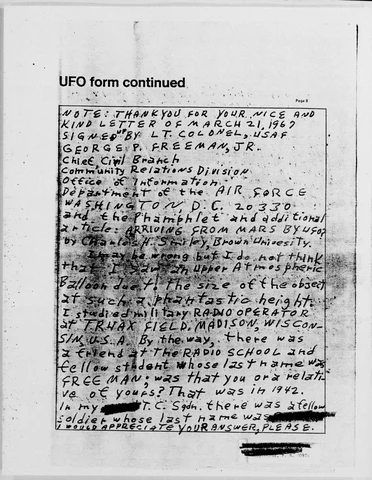 Page 2
UFO form continued
NOTE: THANKYOU FOR YOUR NICE AND
KIND LETTER OF MARCH 21, 1967
SIGNED UP BY LT. COLONEL, USAF
GEORGE P. FREEMAN, JR.
Chief Civil Branch
Community Relations Division
Office of Information
Department of the AIR FORCE
WASHINGTON D.C. 20330
and the Phamphlet and additional
article: ARRIVING FROM MARS BY UFO?
by Charles H. Smiley, Brown Univesity.
I may be wrong but I do not think
that I saw an Upper Atmospheric
Balloon due to the size of the object
at such a phantastic height.
I studied military RADIO OPERATOR
at TRUAX FIELD, MADISON, WISCON-
SIN, U.S.A. By the way, there was
a friend at THE RADIO SCHOOL and
fellow student whose last name was
FREEMAN; was that you or a relati-
ve of yours? That was in 1942.
In my T.C. Sqdn. there was a fellow
soldier whose last name was
I WOULD APPRECIATE YOUR ANSWER, PLEASE.